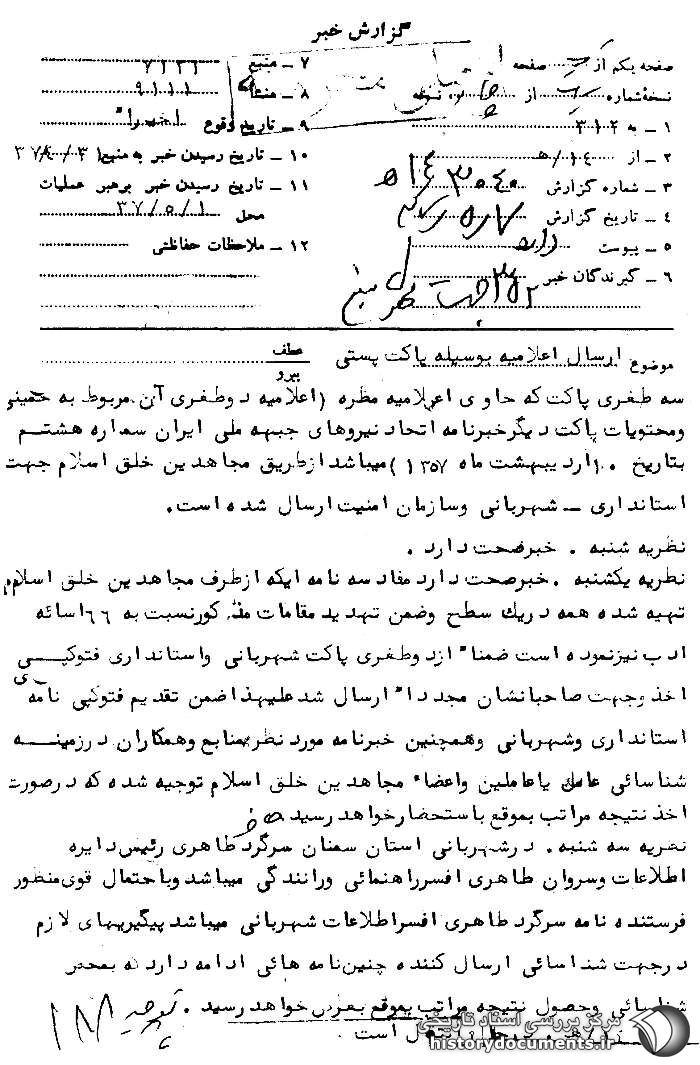 گزارش خبر
صفحه یکم از صفحه
نسخه شماره از نسخه
۱ - به ۳۱۲
۲ - از ۱۴/ه
۳ - شماره گزارش
۴ - تاریخ گزارش
۵ - پیوست دارد
۶ - گیرندگان خبر
۷ - منبع ۷۱۳۱
۸ - منشأ ۹۱۱۱
۹ - تاریخ وقوع اخیراً
۱۰ - تاریخ رسیدن خبر به منبع
۱۱ - تاریخ رسیدن خبر برهبر عملیات
محل ۳۷/۵/۱
۱۲ - ملاحظات حفاظتی
موضوع ارسال اعلامیه بوسیله پاکت پستی
عطف
پیرو
سه طغری پاکت که حاوی اعلامیه مظره (اعلامیه دوطغری آن مربوط به خمینی
ومحتویات پاکت دیگر خبرنامه اتحاد نیروهای جبهه ملی ایران سماره هشتم
بتاریخ ۱۰اردیبهشت ماه ۱۳۵۷) میباشد از طریق مجاهدین خلق اسلام جهت
استانداری - شهربانی وسازمان امنیت ارسال شده است.
نظریه شنبه . خبر صحت دارد .
نطریه یکشنبه . خبر صحت دارد مفاد سه نامه ایکه از طرف مجاهدین خلق اسلام
تهیه شده همه دریك سطح وضمن تهدید مقامات مذکور نسبت به ۶۶ اسائه
ادب نیز نموده است ضمناً از دوطغری پاکت شهربانی واستانداری فتوکپی
اخذ وجهت صاحبانشان مجدداً ارسال شد علیهذا ضمن تقدیم فتوکپی نامه های
استانداری وشهربانی وهمچنین خبرنامه مورد نظر بمنابع وهمکاران در زمینه
شناسائی عامل یا عاملین واعضاء مجاهدین خلق اسلام توجیه شده که در صورت
اخذ نتیجه مراتب بموقع باستحضار خواهد رسید
نضریه سه شنبه . در شهربانی استان سمنان سرگرد طاهری رئیس دایره
اطلاعات وسروان طاهری افسر راهنمائی ورانندگی میباشد وباحتمال قوی منظور
فرستنده نامه سرگرد طاهری افسر اطلاعات شهربانی میباشد پیگیریهای لازم
در جهت شناسائی ارسال کننده چنین نامه هائی ادامه دارد که بمحض
شناسائی وحصول نتیجه مراتب بموقع بعرض خواهد رسید .
در حال انتقال است .
مرکز بررسی اسناد تاریخی
historydocuments.ir